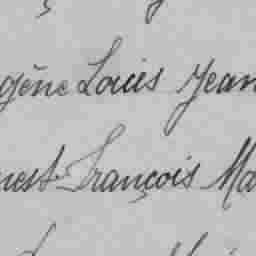 gène Louis Jean
nest François Ma